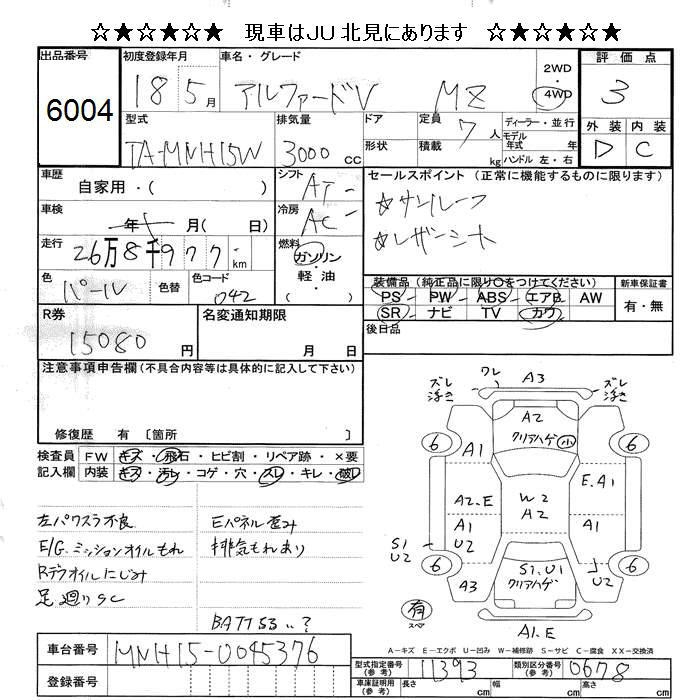 ☆★☆★☆★ 現車はJU北見にあります ☆★☆★☆★
出品番号 6004
初度登録年月 18 5月
車名・グレード アルファードV MZ
2WD
4WD
評価点 3
外装 内装
D C
型式 TA-MNH15W
排気量 3000cc
ドア
形状
定員 7人
積載 kg
ディーラー・並行
モデル年式 年
ハンドル 左・右
車歴 自家用・( )
シフト AT
セールスポイント (正常に機能するものに限ります)
☆サンルーフ
☆レザーシート
車検 年 月( 日)
冷房 AC
走行 26万8千977km
燃料 ガソリン・軽油( )
色 パール
色替
色コード 042
装備品 (純正品に限り○をつけてください)
PS PW ABS エアB AW
SR ナビ TV カワ
新車保証書
有・無
後日品
R券 15080円
名変通知期限
月 日
注意事項申告欄(不具合内容等は具体的に記入して下さい)
修復歴 有 〔箇所 〕
検査員記入欄
FW キズ・飛石・ヒビ割・リペア跡・×要
内装 キズ・汚レ・コゲ・穴・スレ・キレ・破レ
左パワスラ不良
E/G.ミッションオイルもれ
Rデフオイルにじみ
足廻りSC
Eパネル歪み
排気もれあり
BATT 53..?
ズレ
浮き
ワレ
A3
ズレ
浮き
A2
クリアハゲ 小
6
6
A1
A2.E
W2
A2
E.A1
A1
U2
A1
S1
U2
6
6
U2
A3
S1.U1
クリアハゲ
有
スペア
A1.E
A-キズ E-エクボ U-凹み W-補修跡 S-サビ C-腐食 XX-交換済
車台番号 MNH15-0045376
登録番号
型式指定番号(参考) 11393
類別区分番号(参考) 0678
車庫証明用(参考) 長さ cm 幅 cm 高さ cm